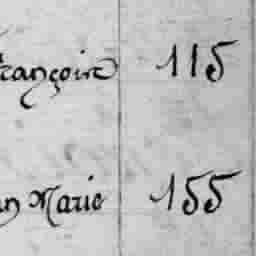 françoise 115
n Marie 155